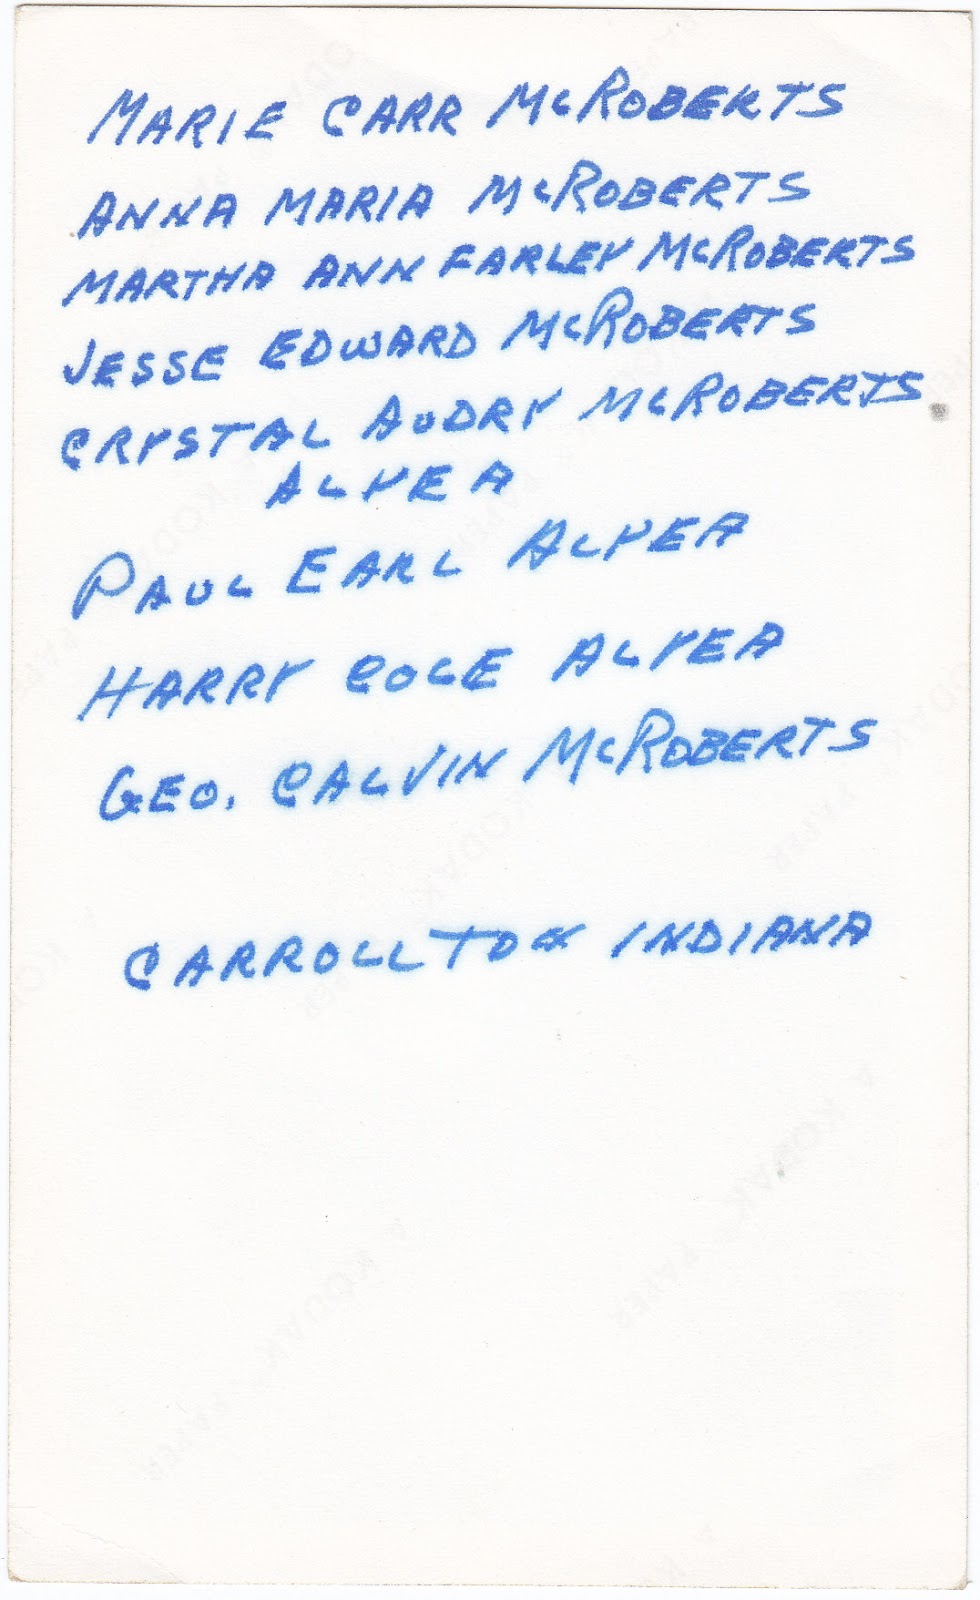 MARIE CARR McROBERTS
ANNA MARIA McROBERTS
MARTHA ANN FARLEY McROBERTS
JESSE EDWARD McROBERTS
CRYSTAL AUDRY McROBERTS
ALYEA
PAUL EARL ALYEA
HARRY COLE ALYEA
GEO. CALVIN McROBERTS
CARROLLTON INDIANA